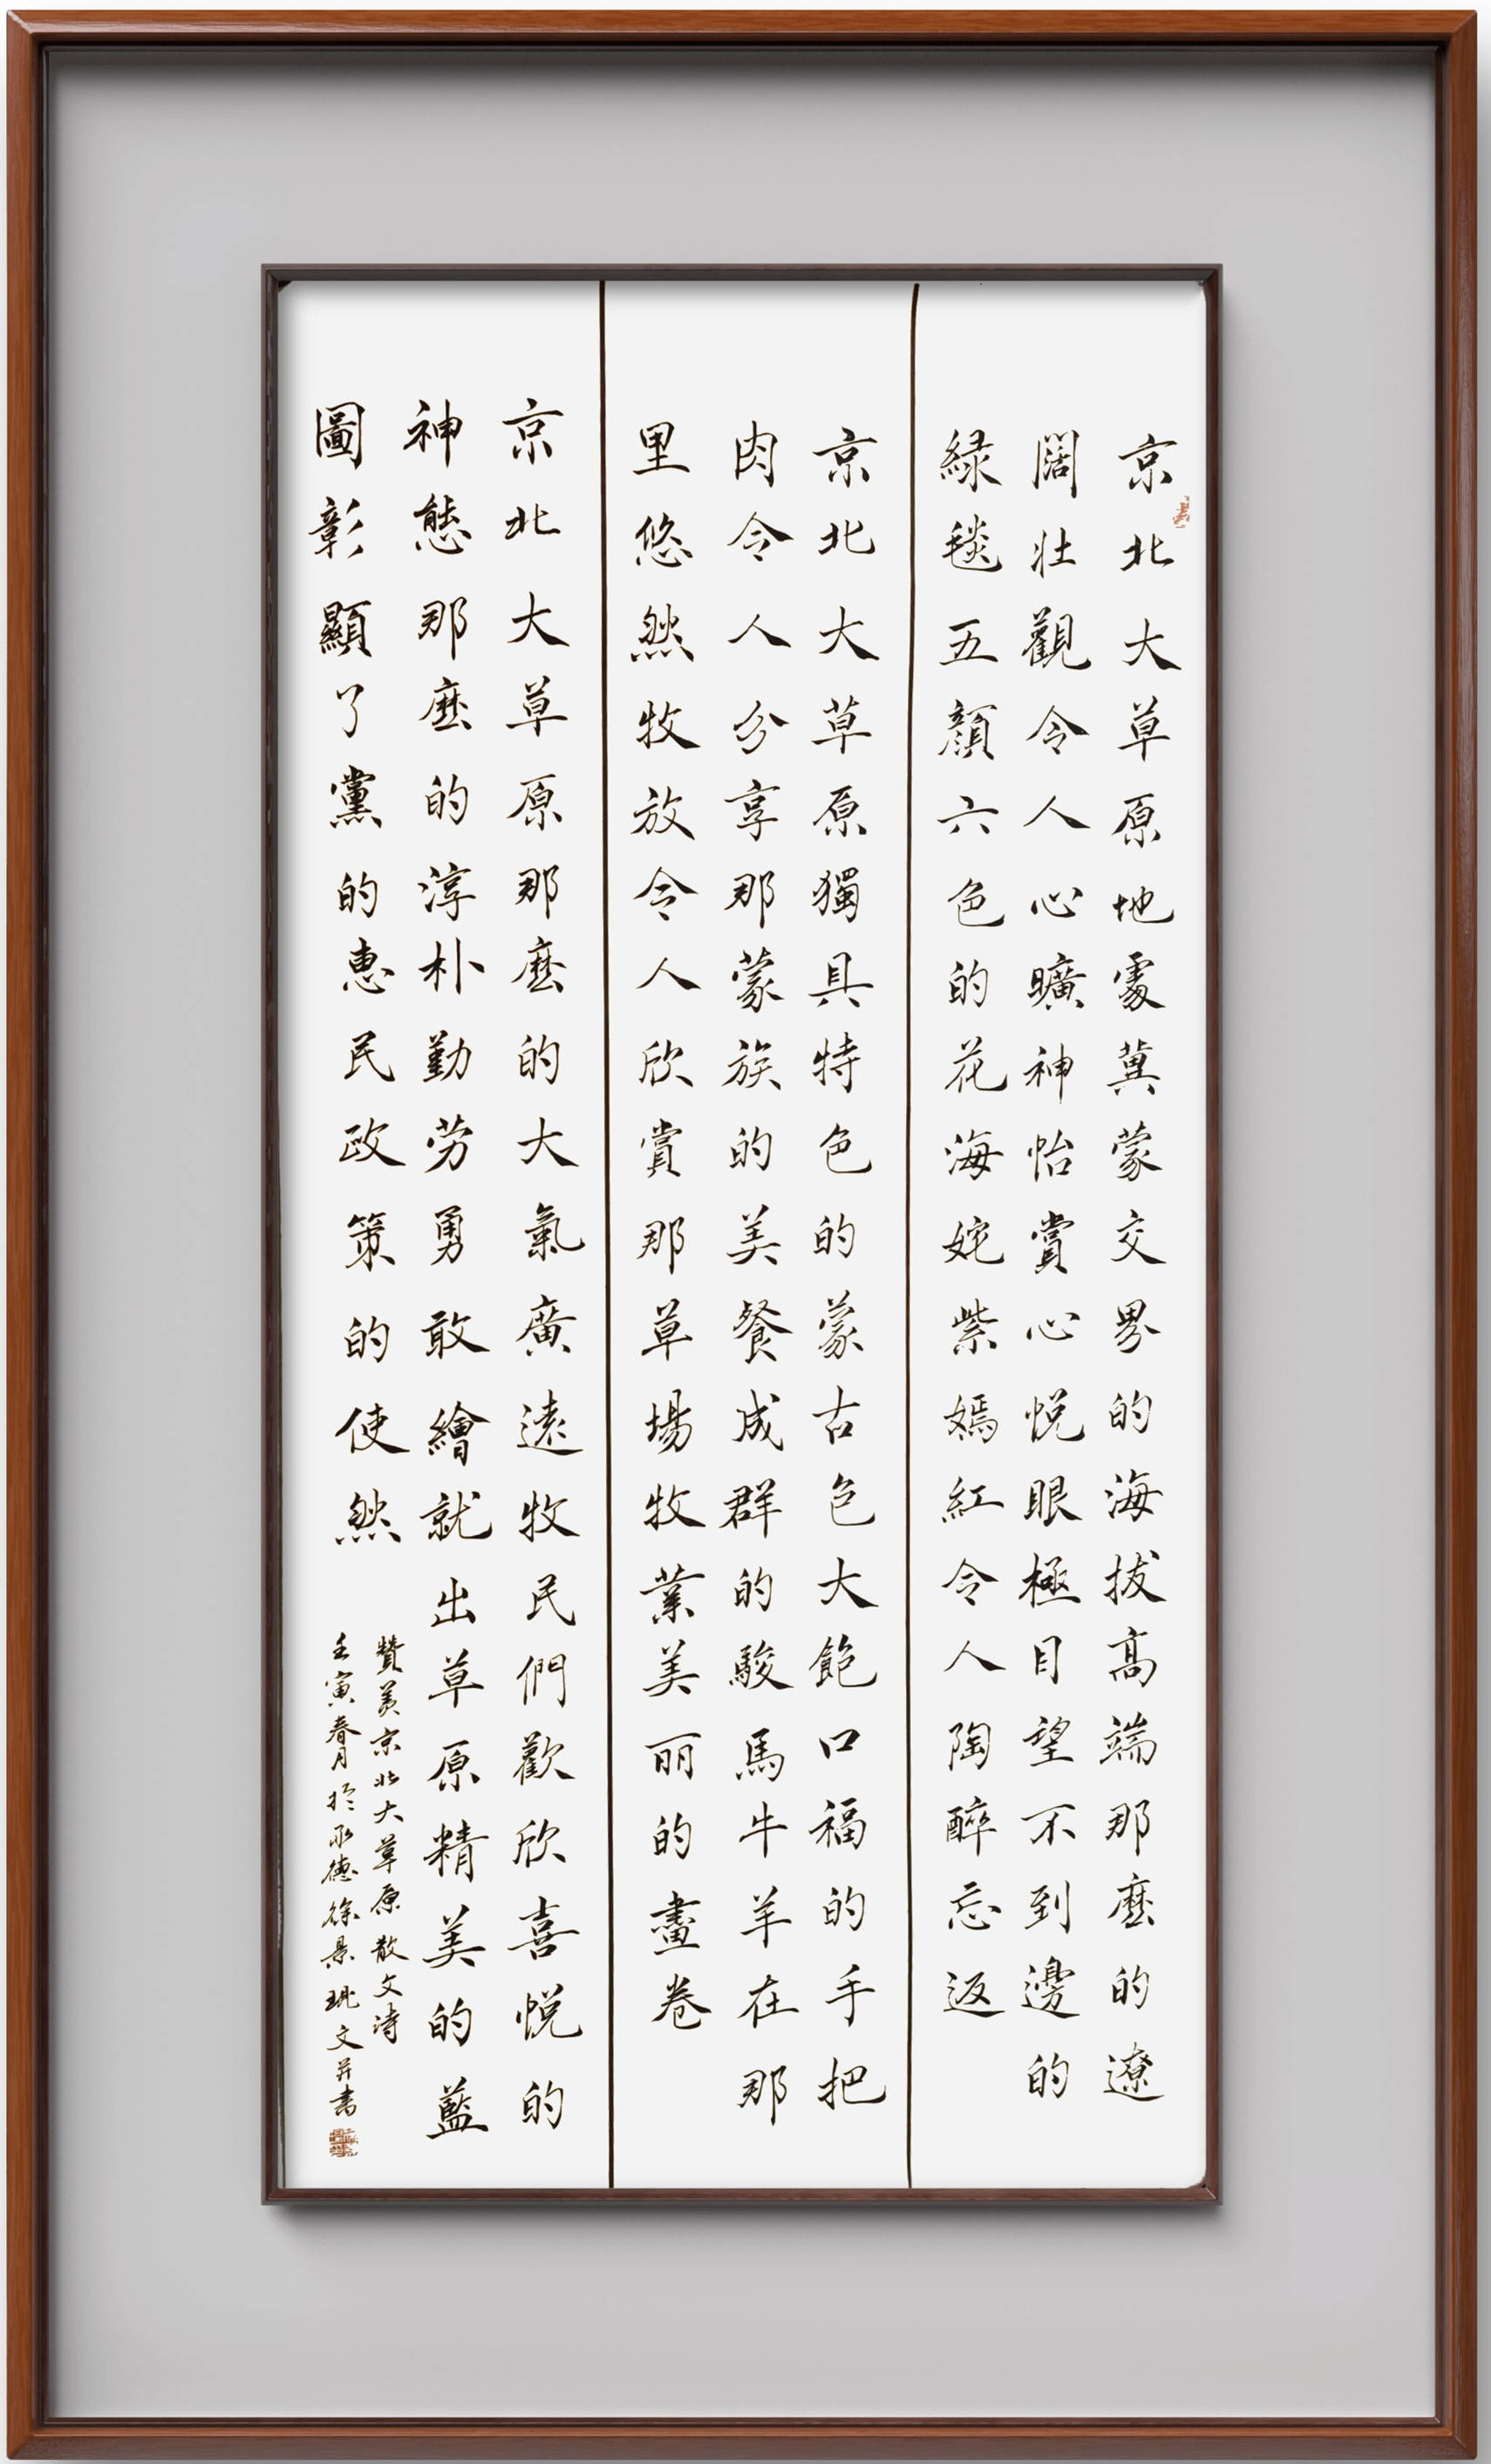 京北大草原地處冀蒙交界的海拔高端那麼的遼
闊壯觀令人心曠神怡賞心悅眼極目望不到邊的
緑毯五顏六色的花海姹紫嫣紅令人陶醉忘返
京北大草原獨具特色的蒙古包大飽口福的手把
肉令人分享那蒙族的美餐成群的駿馬牛羊在那
里悠然牧放令人欣賞那草場牧業美丽的畫卷
京北大草原那麼的大氣廣遠牧民們歡欣喜悅的
神態那麼的淳朴勤劳勇敢繪就出草原精美的藍
圖彰顯了黨的惠民政策的使然
贊美京北大草原散文诗
壬寅春月於承德徐景珧文并書